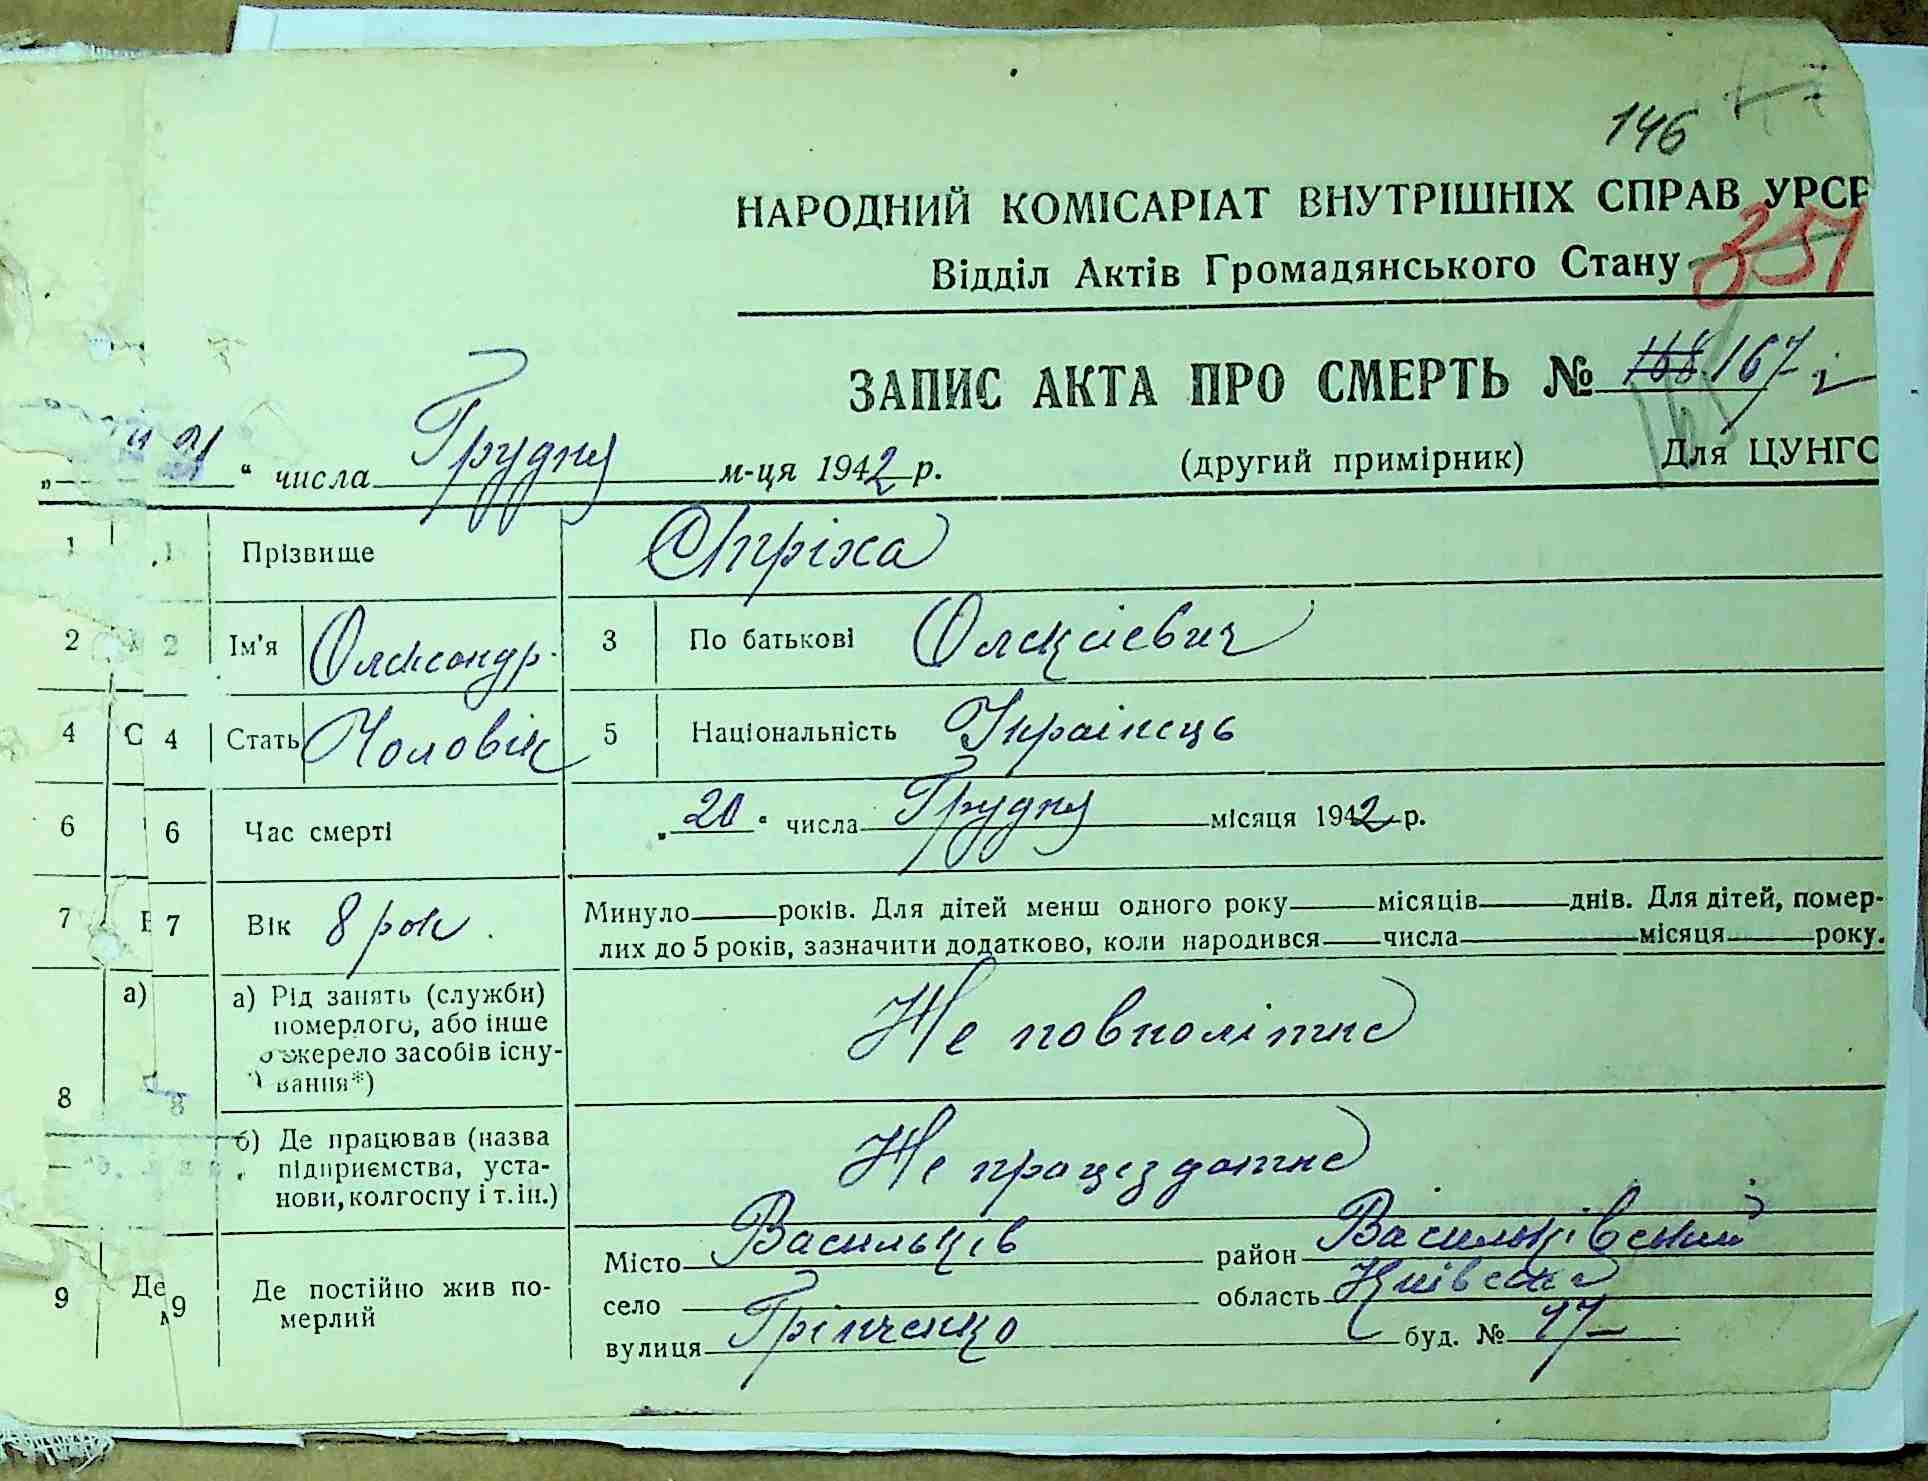 146
НАРОДНИЙ КОМІСАРІАТ ВНУТРІШНІХ СПРАВ УРСР
351
Відділ Актів Громадянського Стану
ЗАПИС АКТА ПРО СМЕРТЬ № 168 167
„ 21 “ числа Грудня м-ця 1942 р. (другий примірник) Для ЦУНГО
1 1 Прізвище Стріха
2 2 Ім'я Олександр. 3 По батькові Олексієвич
4 С 4 Стать Чоловік 5 Національність Українець
6 6 Час смерті „ 20 “ числа Грудня місяця 1942 р.
7 7 Вік 8 рок. Минуло——років. Для дітей менш одного року——місяців——днів. Для дітей, помер-
лих до 5 років, зазначити додатково, коли народився——числа——місяця——року.
а) а) Рід занять (служби)
померлого, або інше
джерело засобів існу-
вання*)
Не повнолітнє
8 8
б) Де працював (назва
підприємства, уста-
нови, колгоспу і т. ін.)
Не працездатне
9 Де 9 Де постійно жив по-
мерлий
Місто Васильків район Васильківський
село область Київська
вулиця Грінченко буд. № 17